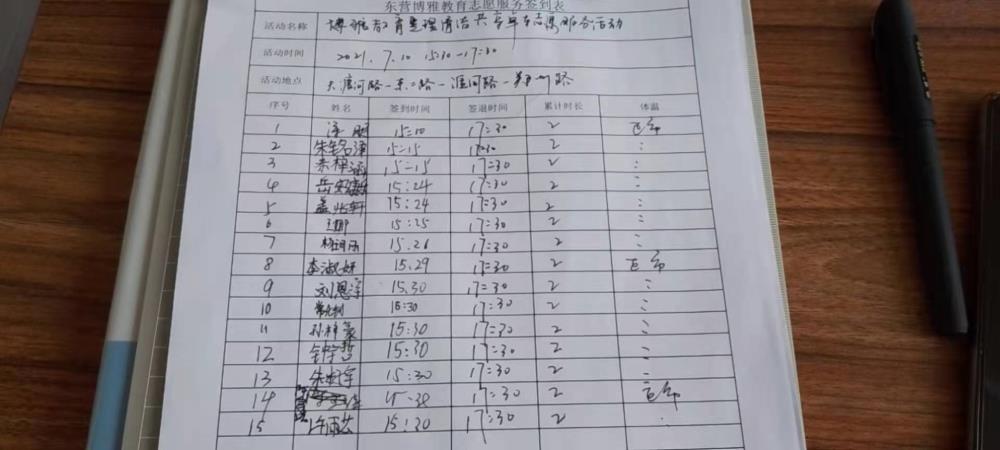 东营博雅教育志愿服务签到表
活动名称 博雅教育整理清洁共享单车志愿服务活动
活动时间 2021.7.10 15:30-17:30
活动地点 大渡河路-东二路-淮河路-路
序号 姓名 签到时间 签退时间 累计时长 体温
1 15:10 17:30 2 正常
2 朱铭 15-15 17:30 2 :
3 15-15 17:30 2 :
4 岳 15:24 17:30 2 :
5 孟兆轩 15:24 17:30 2 :
6 15:25 17:30 2 :
7 15.26 17:30 2 :
8 李淑妍 15.29 17:30 2 正常
9 刘恩 15.30 17:30 2 :
10 15:30 17:30 2 :
11 孙梓 15:30 17:30 2 :
12 15:30 17:30 2 :
13 朱 15:30 17:30 2 :
14 17:30 2 正常
15 许雨芯 15:20 17:30 2 :